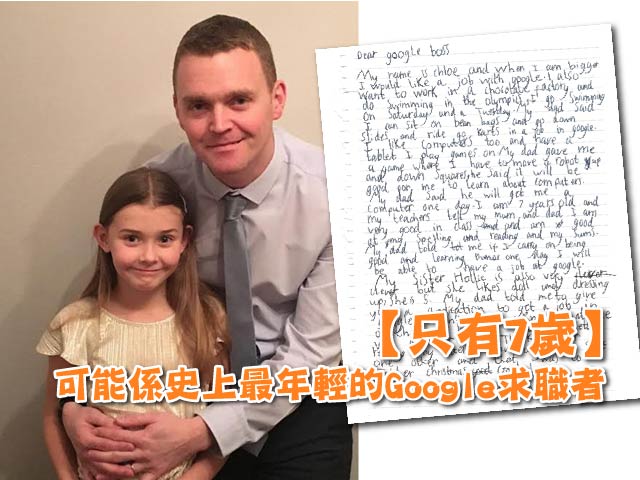 Dear google boss
My name is chloe and when I am bigger
I would like a job with google. I also
want to work in a chocolate factory and
do swimming in the olympics. I go swimming
on Saturday and a Tuesday. My dad said
I can sit on bean bags and go down
slides and ride go karts in a job in google.
I like computers too and have a
tablet I play games on. My dad gave me
a game where I have to move a robot up
and down squares, he said it will be
good for me to learn about computers.
My dad said he will get me a
computer one day. I am 7 years old and
my teachers tell my mum and dad I am
very good in class and am good
at my spelling and reading and my sums.
My dad told me if I carry on being
good and learning then one day I will
be able to have a job at google.
My sister Hollie is also very
clever but she likes doll and dressing
up, she is 5. My dad told me to give
you application to get a job in
【只有7歲】
可能係史上最年輕的Google求職者
christmas